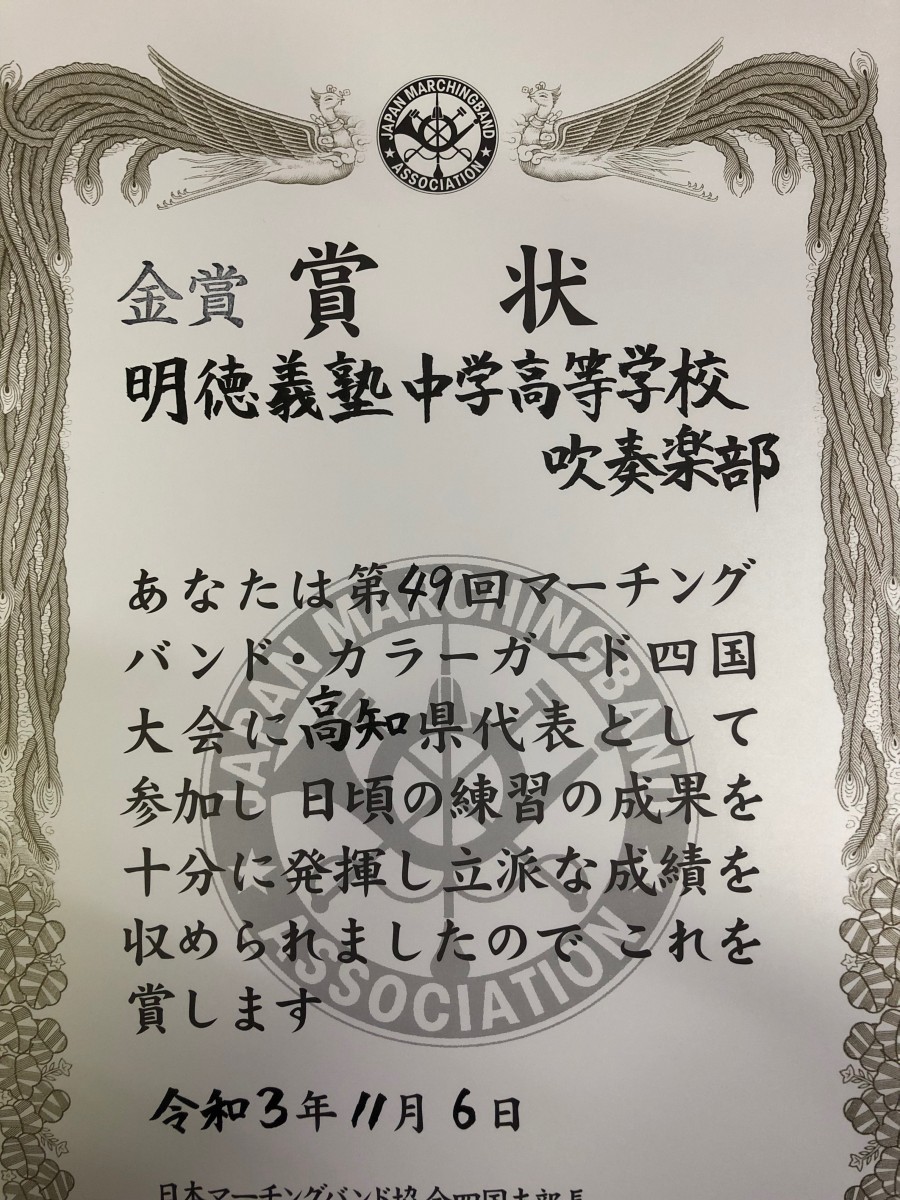 JAPAN MARCHINGBAND
ASSOCIATION
金賞 賞状
明徳義塾中学高等学校
吹奏楽部
JAPAN MARCHINGBAND
ASSOCIATION
あなたは第49回マーチング
バンド・カラーガード四国
大会に高知県代表として
参加し 日頃の練習の成果を
十分に発揮し立派な成績を
収められましたので これを
賞します
令和3年11月6日
日本マーチングバンド協会四国支部長